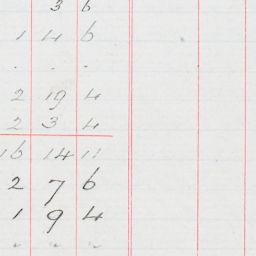 3 6
1 4 6
. . .
2 19 4
2 3 4
16 14 11
2 7 6
1 9 4
" " "